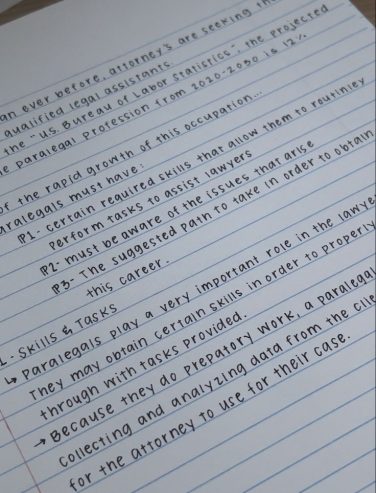 an ever before, attorney's are seeking
qualified legal assistants.
the "U.S. Bureau of Labor Statistics", the projected
paralegal profession from 2020-2030 is 12%.
of the rapid growth of this occupation...
aralegals must have:
P1- certain required skills that allow them to routinley
perform tasks to assist lawyers
P2- must be aware of the issues that arise
P3- The suggested path to take in order to obtain
this career.
- Skills & Tasks
↳ Paralegals play a very important role in the lawye
They may obtain certain skills in order to properly
through with tasks provided.
→ Because they do prepatory work, a paralegal
collecting and analyzing data from the clie
for the attorney to use for their case.